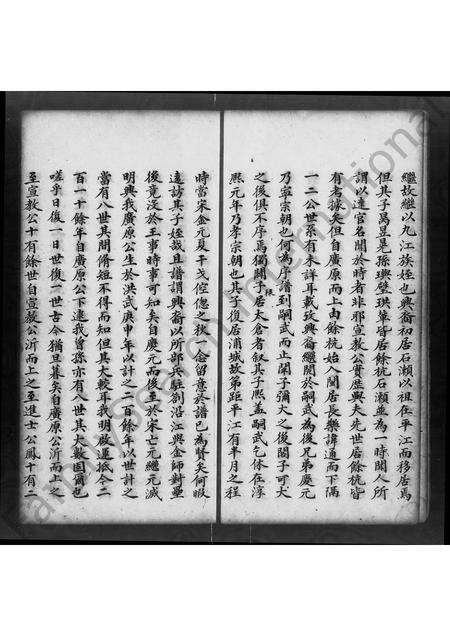 繼故繼以九江族姪也興裔初居石瀬以祖在平江而移居焉
但其子萬昱晃孫璵璧珙輩皆居餘杭石瀬並為一時聞人所
謂以達官名聞於時者非耶宣教公實歴與夫先世居餘杭皆
有者據矣但自廣原而上由餘杭始入閩居長樂諱通而下隔
一二公世系有未詳耳載攷興裔繼閎於嗣武為後兄弟慶元
乃寧宗朝也何為序譜到嗣武而止閎子彌大之後閎子可大
之後俱不序焉獨閎子居太倉者叙其子熙盖嗣武乞休在淳
熙元年乃孝宗朝也其子復居浦城故第距平江有半月之程
時當宋金元夏干戈倥偬之秋一念留意於譜已為賢矣何暇
遠訪其子姪哉且譜謂興裔以所部兵駐劄沿江與金師對壘
後竟没於王事時事可知矣自慶元而後至於宋亡元繼元滅
明興我廣原公生於洪武庚申年以計之一百餘年以世計之
當有八世其間脩短不得而知但其大較耳我明啟運抵今二
百一十餘年自廣原公下逮我曾孫亦有八世其大數固爾也
嗟乎日復一日世復一世古今猶旦暮矣自廣原公泝而上之
至宣教公十有餘世自宣教公泝而上之至進士公鳳十有二
FamilySearch International